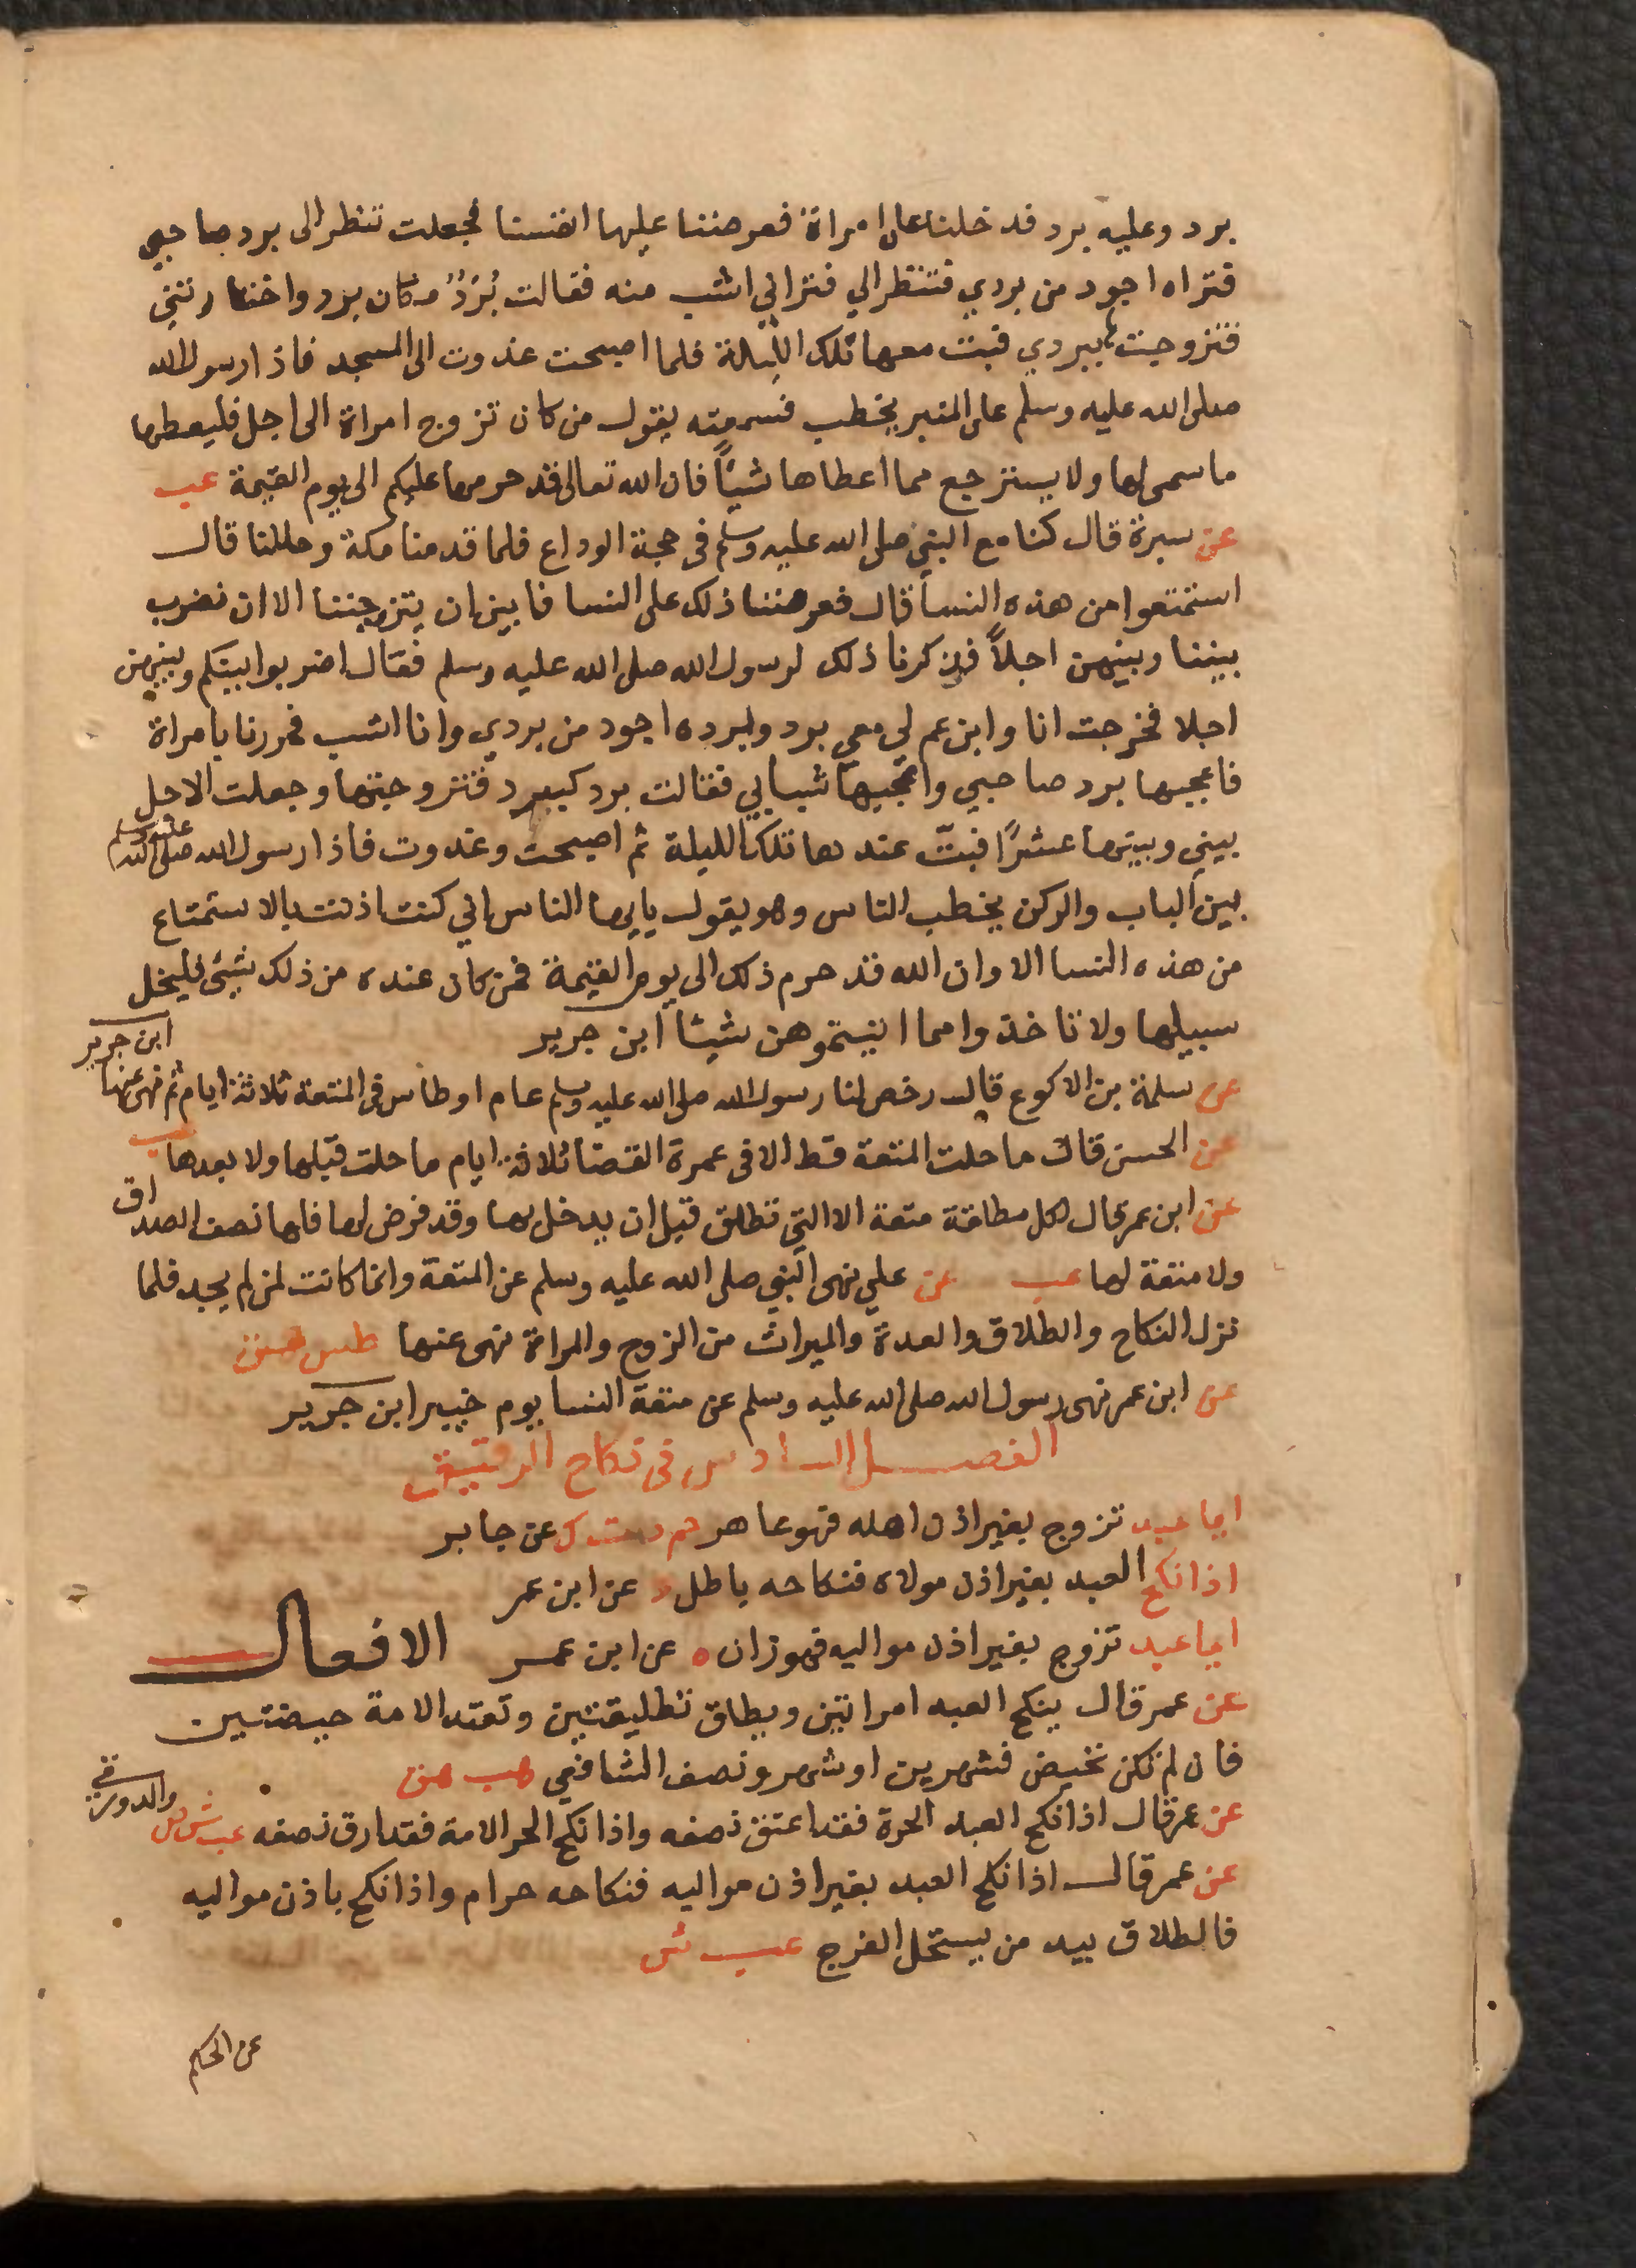 برد وعليه برد فدخلنا على امراة فعرضنا عليها انفسنا فجعلت تنظر الى برد صاحبي
فتراه اجود من بردي فتنظر الي فتراني اشب منه فقالت بُرَدٌ مكان برد واختارتني
فتزوجتها ببردي فبت معها تلك الليلة فلما اصبحت غدوت الى المسجد فاذا رسول الله
صلى الله عليه وسلم على المنبر يخطب فسمعته يقول من كان تزوج امراة الى اجل فليعطها
ما سمى لها ولا يسترجع مما اعطاها شيئاً فان الله تعالى قد حرمها عليكم الى يوم القيمة عب
عن سبرة قال كنا مع النبي صلى الله عليه وسلم في حجة الوداع فلما قدمنا مكة وحللنا قال
استمتعوا من هذه النسا قال فعرضنا ذلك على النسا فابين ان يتزوجننا الا ان نضرب
بيننا وبينهن اجلاً فذكرنا ذلك لرسول الله صلى الله عليه وسلم فقال اضربوا بينكم وبينهن
اجلا فخرجت انا وابن عم لي معي برد وبرده اجود من بردي وانا اشب فمررنا بامراة
فاعجبها برد صاحبي واعجبها شبابي فقالت برد كبرد فتزوجتها وجعلت الاجل
بيني وبينها عشرًا فبتّ عندها تلك الليلة ثم اصبحت وغدوت فاذا رسول الله صلى الله عليه وسلم
بين الباب والركن يخطب الناس وهو يقول يايها الناس اني كنت اذنت بالاستمتاع
من هذه النسا الا وان الله قد حرم ذلك الى يوم القيمة فمن كان عنده من ذلك شيئ فليخل
سبيلها ولا تاخذوا مما اتيتموهن شيئا ابن جرير
عن سلمة بن الاكوع قال رخص لنا رسول الله صلى الله عليه وسلم عام اوطاس في المتعة ثلاثة ايام ثم نهى عنها ابن جرير
عن الحسن قال ما حلت المتعة قط الا في عمرة القضا ثلاثة ايام ما حلت قبلها ولا بعدها عب
عن ابن عمر قال لكل مطلقة متعة الا التي تطلق قبل ان يدخل بها وقد فرض لها فلها نصف الصداق
ولا متعة لها عب عن علي نهى النبي صلى الله عليه وسلم عن المتعة وانما كانت لمن لم يجد فلما
نزل النكاح والطلاق والعدة والميراث من الزوج والمراة نهى عنها طس هق
عن ابن عمر نهى رسول الله صلى الله عليه وسلم عن متعة النسا يوم خيبر ابن جرير
الفصل السادس في نكاح الرقيق
ايما عبد تزوج بغير اذن اهله فهو عاهر حم د ت ك عن جابر
اذا نكح العبد بغير اذن مولاه فنكاحه باطل د عن ابن عمر
ايما عبد تزوج بغير اذن مواليه فهو زان ه عن ابن عمر الافعال
عن عمر قال ينكح العبد امراتين ويطلق تطليقتين وتعتد الامة حيضتين
فان لم تكن تحيض فشهرين او شهر ونصف الشافعي هب هق
عن عمر قال اذا نكح العبد الحرة فقد اعتق نصفه واذا نكح الحر الامة فقد ارق نصفه عب ش ص والدورقي
عن عمر قال اذا نكح العبد بغير اذن مواليه فنكاحه حرام واذا نكح باذن مواليه
فالطلاق بيد من يستحل الفرج عب ش
عن الحكم